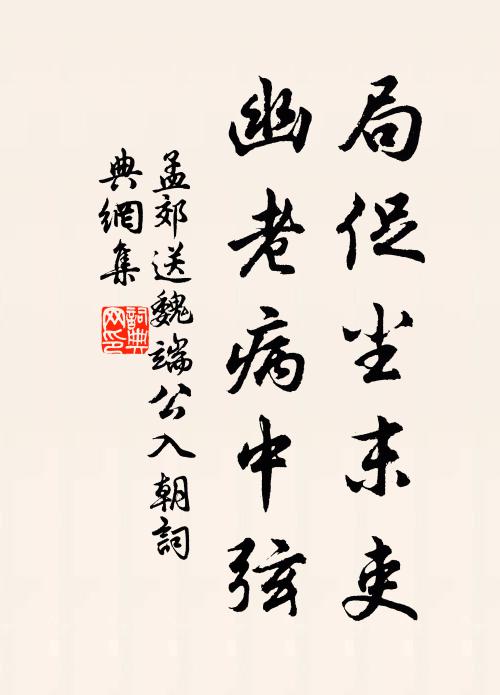 局促尘末吏
幽老病中弦
孟郊送魏端公入朝詞
典網集
詞典网印